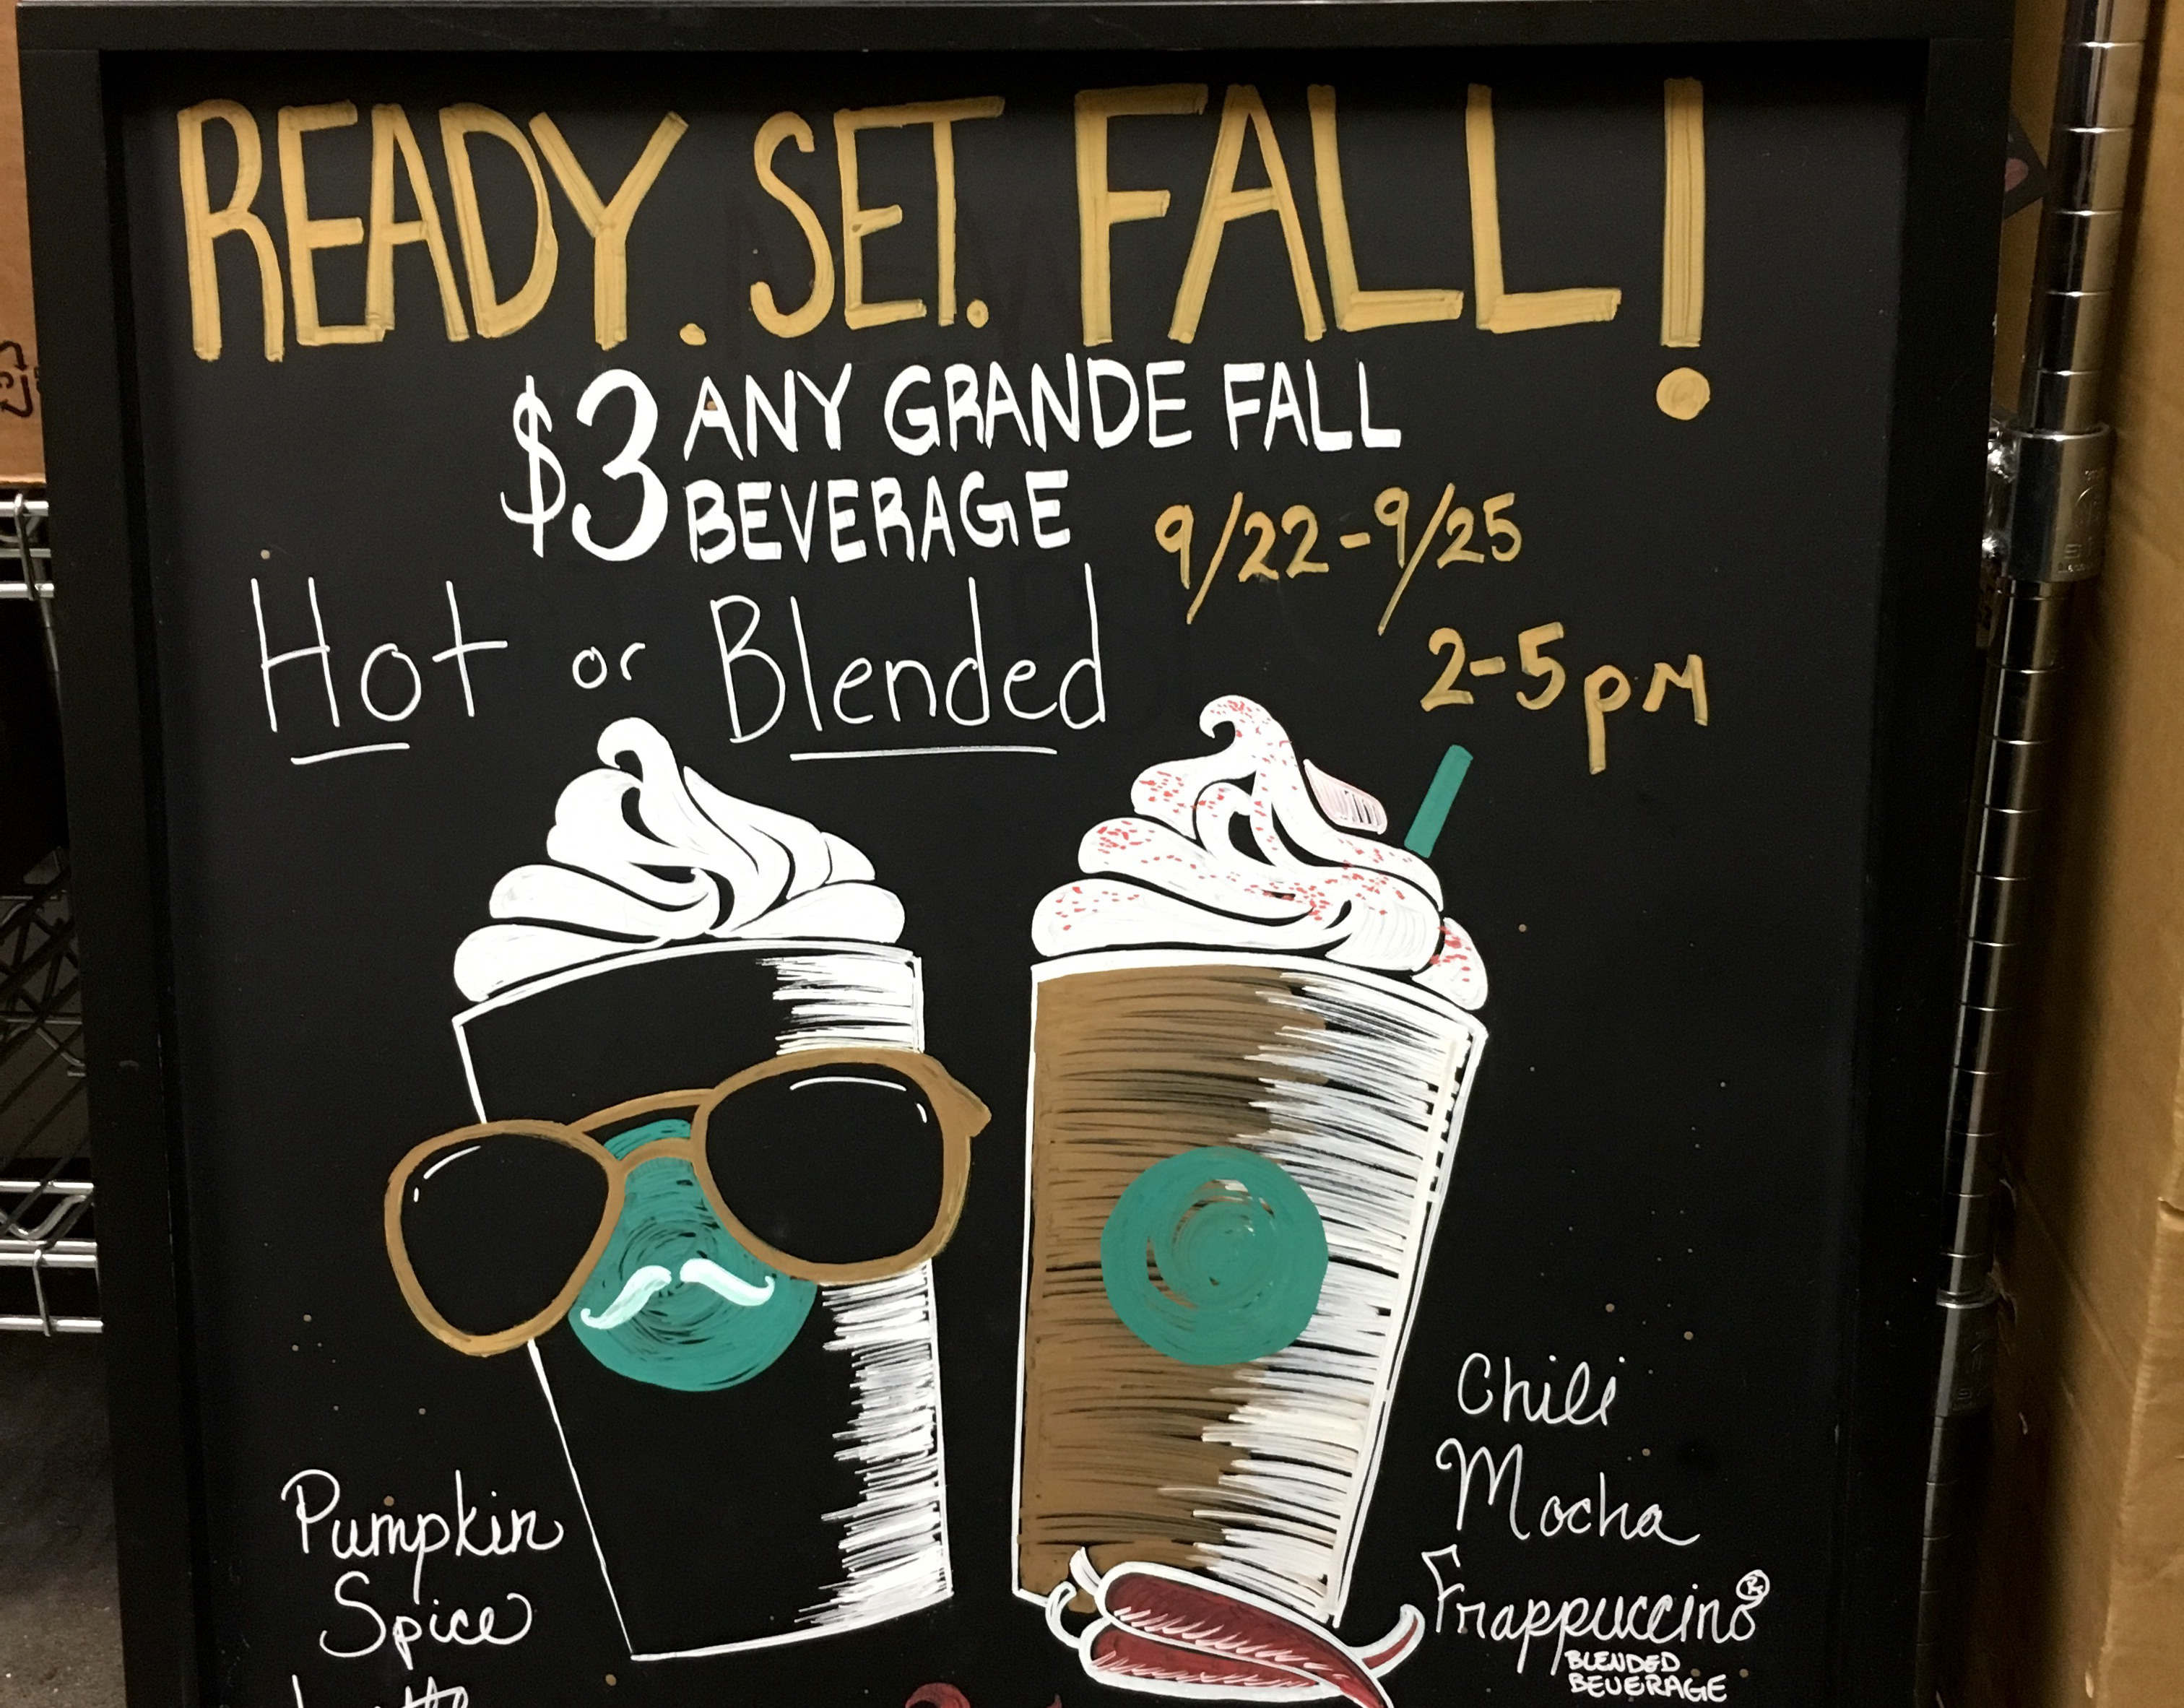 READY. SET. FALL!
$3 ANY GRANDE FALL
BEVERAGE
9/22-9/25
2-5pM
Hot or Blended
Pumpkin
Spice
Latte
Chili
Mocha
Frappuccino®
BLENDED
BEVERAGE